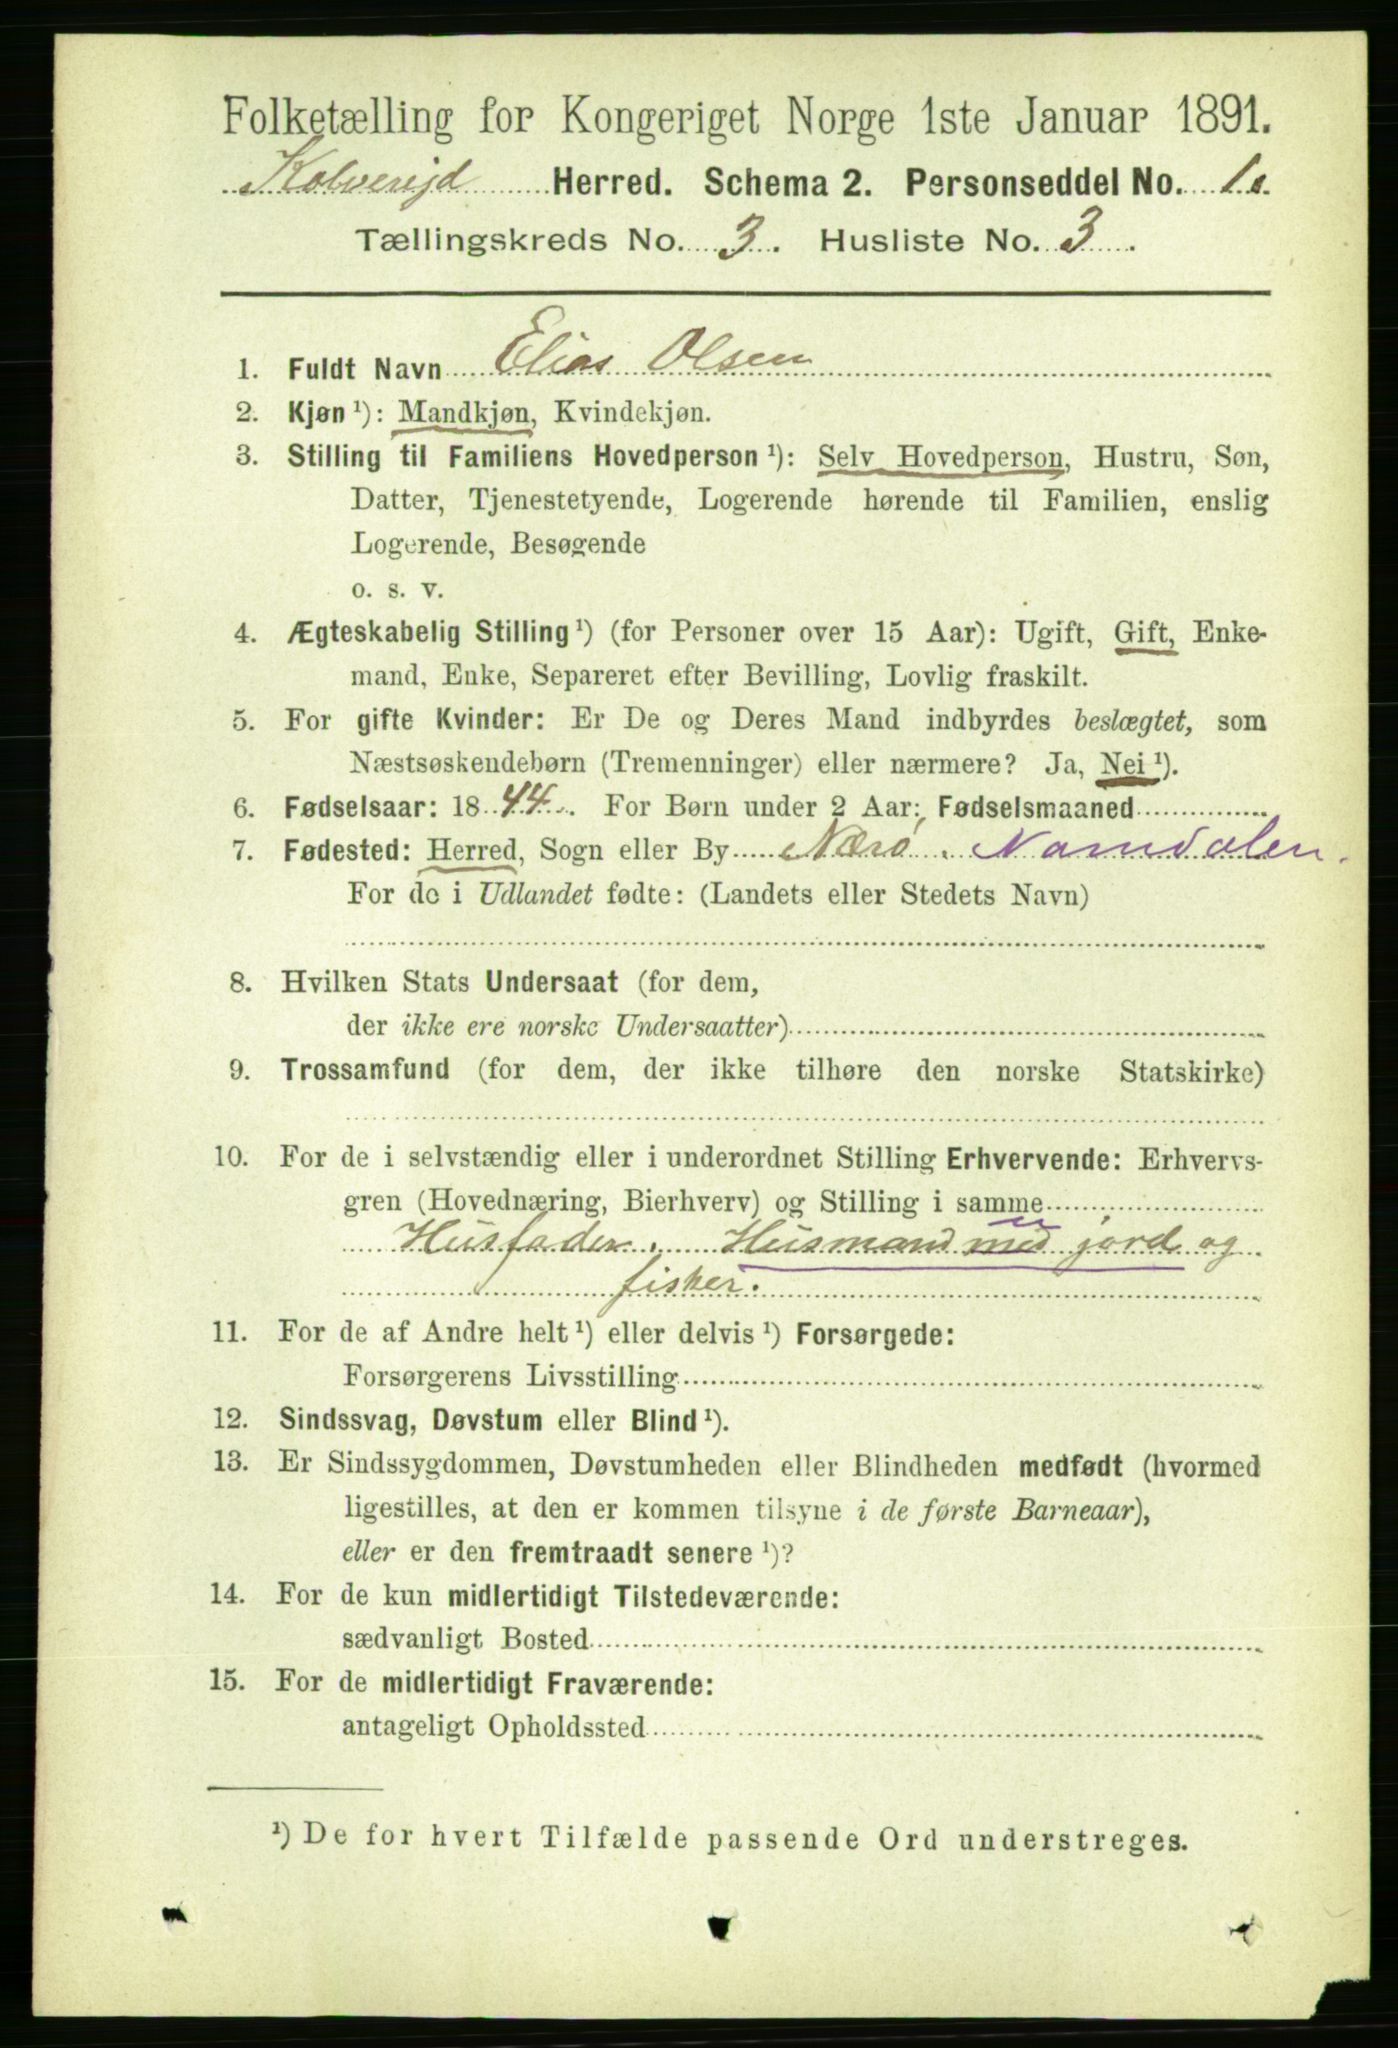 Folketælling for Kongeriget Norge 1ste Januar 1891.
Kolverejd Herred. Schema 2. Personseddel No. 1.
Tællingskreds No. 3. Husliste No. 3.
1. Fuldt Navn Elias Olsen
2. Kjøn ¹): Mandkjøn, Kvindekjøn.
3. Stilling til Familiens Hovedperson ¹): Selv Hovedperson, Hustru, Søn,
Datter, Tjenestetyende, Logerende hørende til Familien, enslig
Logerende, Besøgende
o. s. v.
4. Ægteskabelig Stilling ¹) (for Personer over 15 Aar): Ugift, Gift, Enke-
mand, Enke, Separeret efter Bevilling, Lovlig fraskilt.
5. For gifte Kvinder: Er De og Deres Mand indbyrdes beslægtet, som
Næstsøskendebørn (Tremenninger) eller nærmere? Ja, Nei ¹).
6. Fødselsaar: 1844. For Børn under 2 Aar: Fødselsmaaned
7. Fødested: Herred, Sogn eller By Nærö, Namdalen.
For de i Udlandet fødte: (Landets eller Stedets Navn)
8. Hvilken Stats Undersaat (for dem,
der ikke ere norske Undersaatter)
9. Trossamfund (for dem, der ikke tilhøre den norske Statskirke)
10. For de i selvstændig eller i underordnet Stilling Erhvervende: Erhvervs-
gren (Hovednæring, Bierhverv) og Stilling i samme
Husfader. Husmand med jord og
fisker.
11. For de af Andre helt ¹) eller delvis ¹) Forsørgede:
Forsørgerens Livsstilling
12. Sindssvag, Døvstum eller Blind ¹).
13. Er Sindssygdommen, Døvstumheden eller Blindheden medfødt (hvormed
ligestilles, at den er kommen tilsyne i de første Barneaar),
eller er den fremtraadt senere ¹)?
14. For de kun midlertidigt Tilstedeværende:
sædvanligt Bosted
15. For de midlertidigt Fraværende:
antageligt Opholdssted
¹) De for hvert Tilfælde passende Ord understreges.